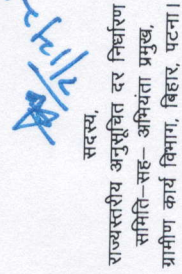 सदस्य,
राज्यस्तरीय अनुसूचित दर निर्धारण
समिति–सह– अभियंता प्रमुख,
ग्रामीण कार्य विभाग, बिहार, पटना।